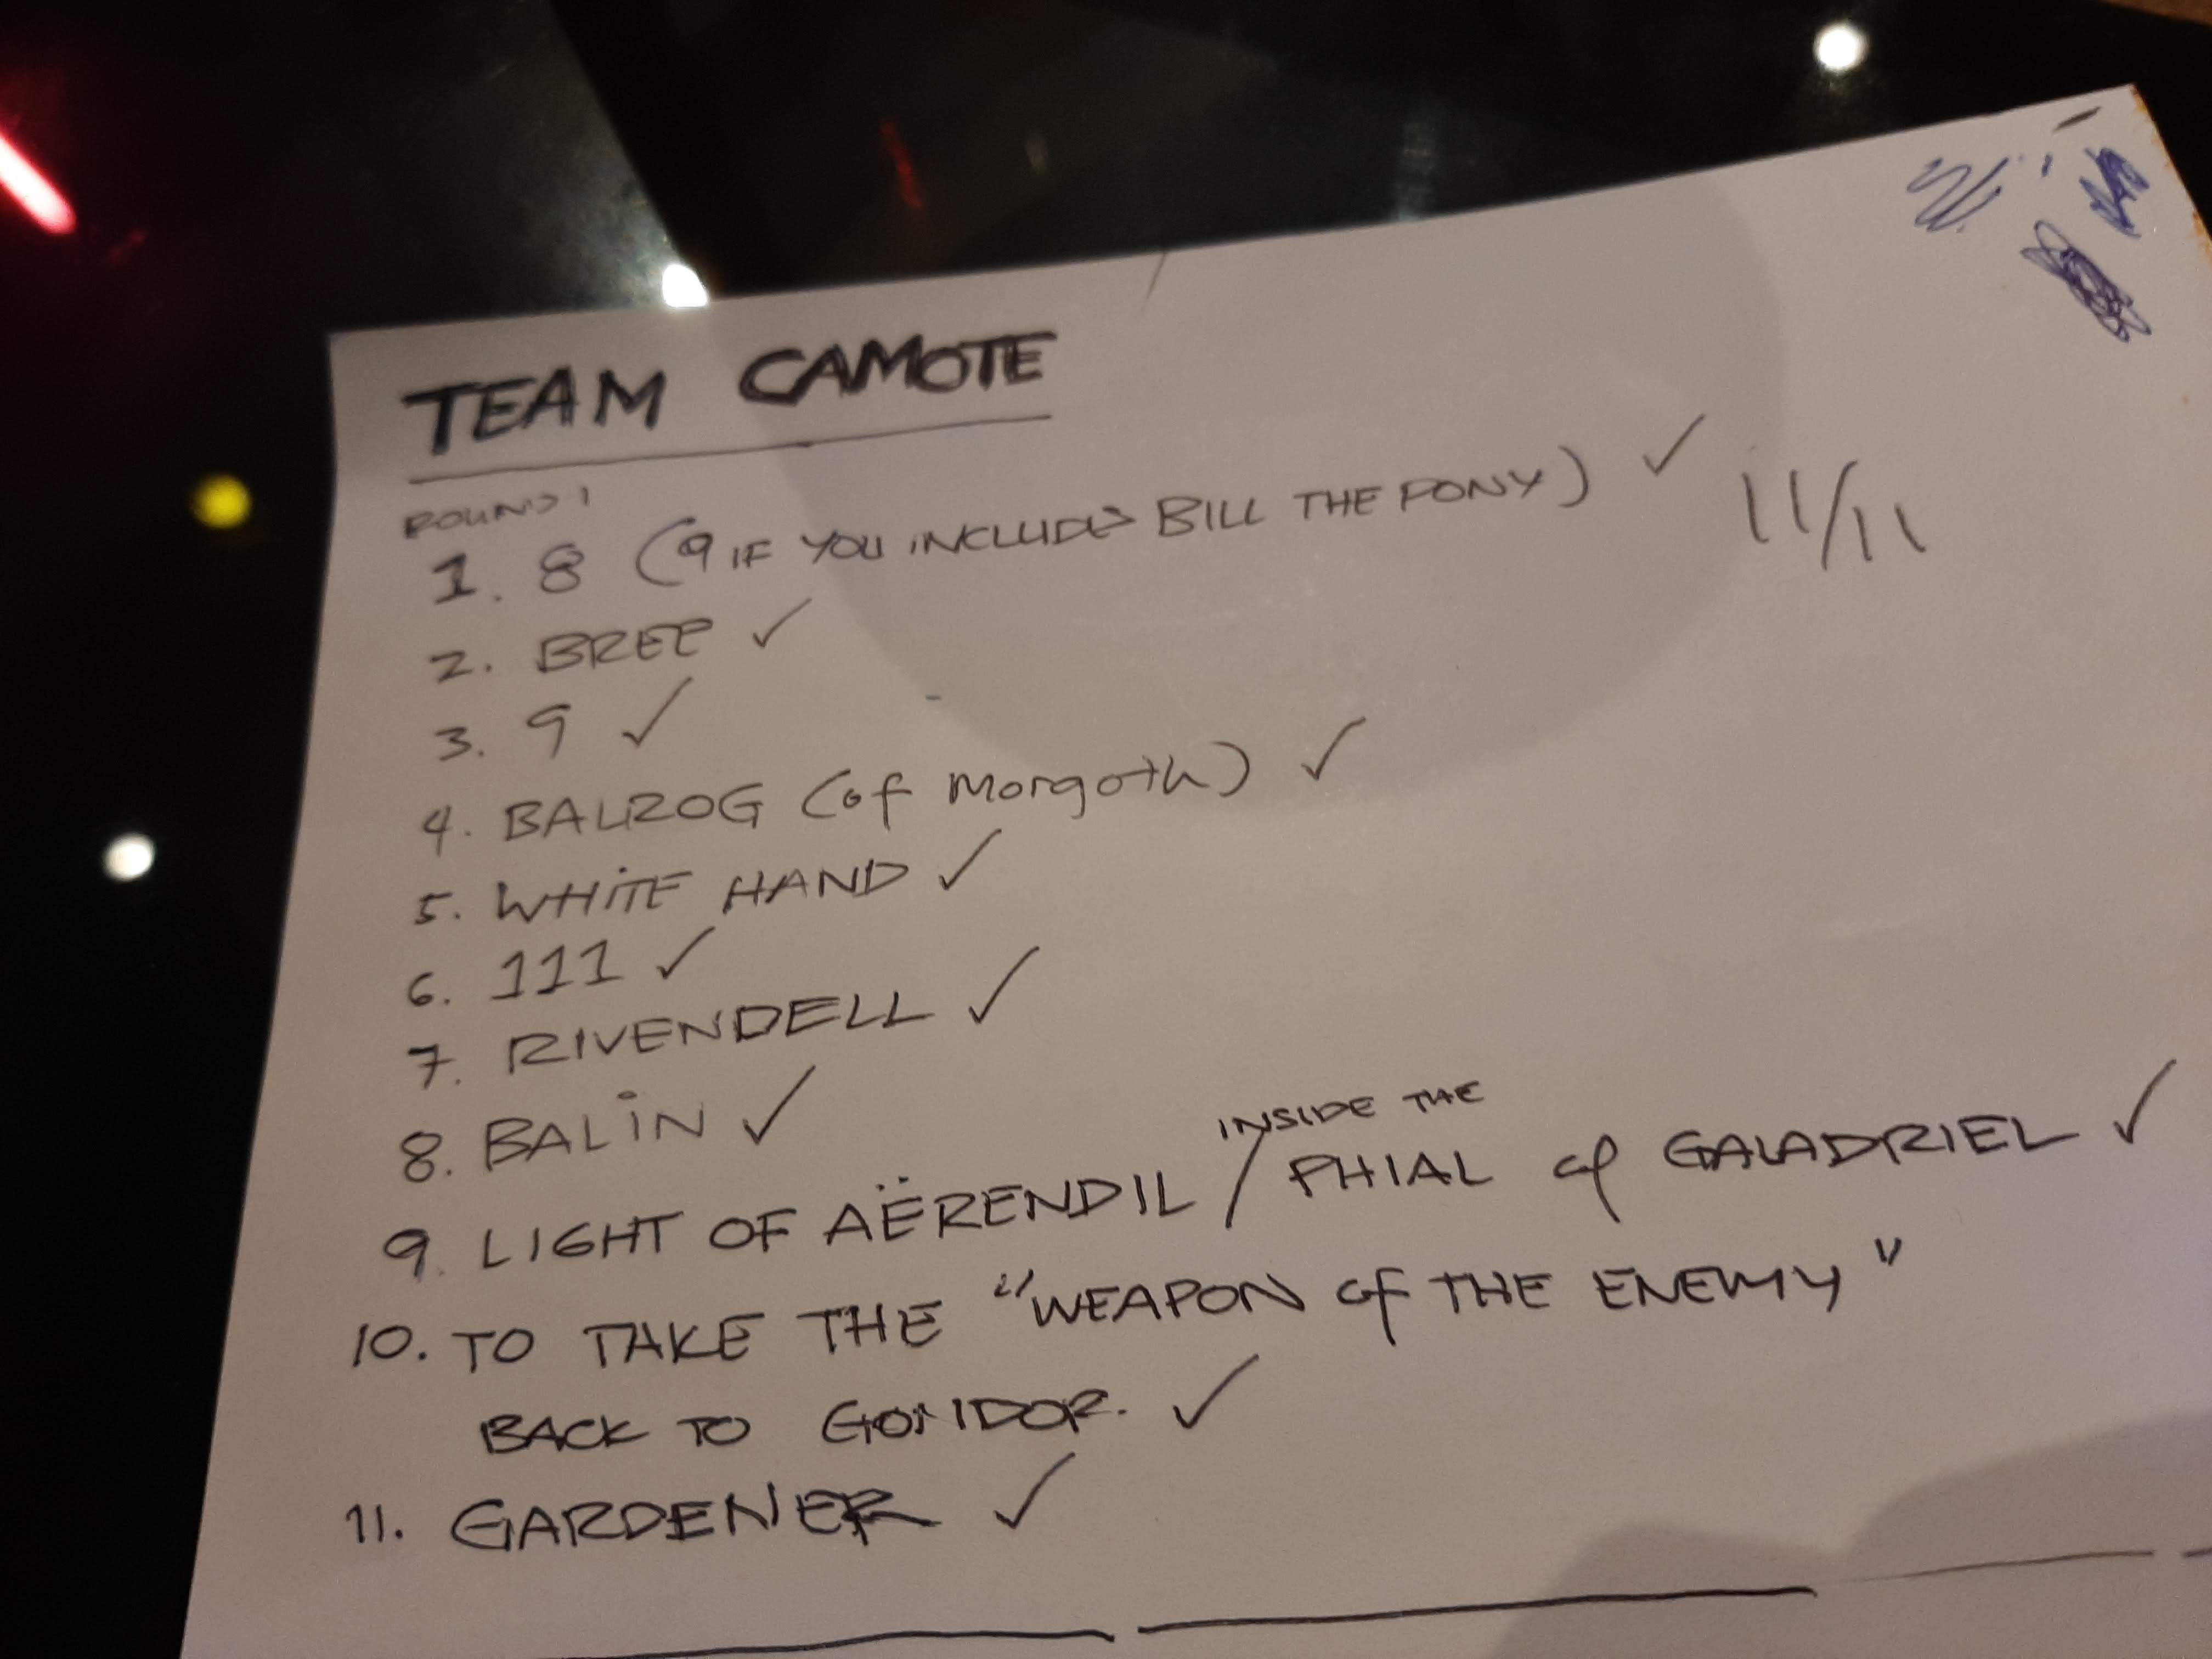 TEAM CAMOTE
ROUND 1
1. 8 (9 IF YOU INCLUDE BILL THE PONY) ✓ 11/11
2. BREE ✓
3. 9 ✓
4. BALROG (of Morgoth) ✓
5. WHITE HAND ✓
6. 111 ✓
7. RIVENDELL ✓
8. BALIN ✓
9. LIGHT OF AËRENDIL / INSIDE THE PHIAL of GALADRIEL ✓
10. TO TAKE THE "WEAPON of THE ENEMY"
BACK TO GONDOR. ✓
11. GARDENER ✓